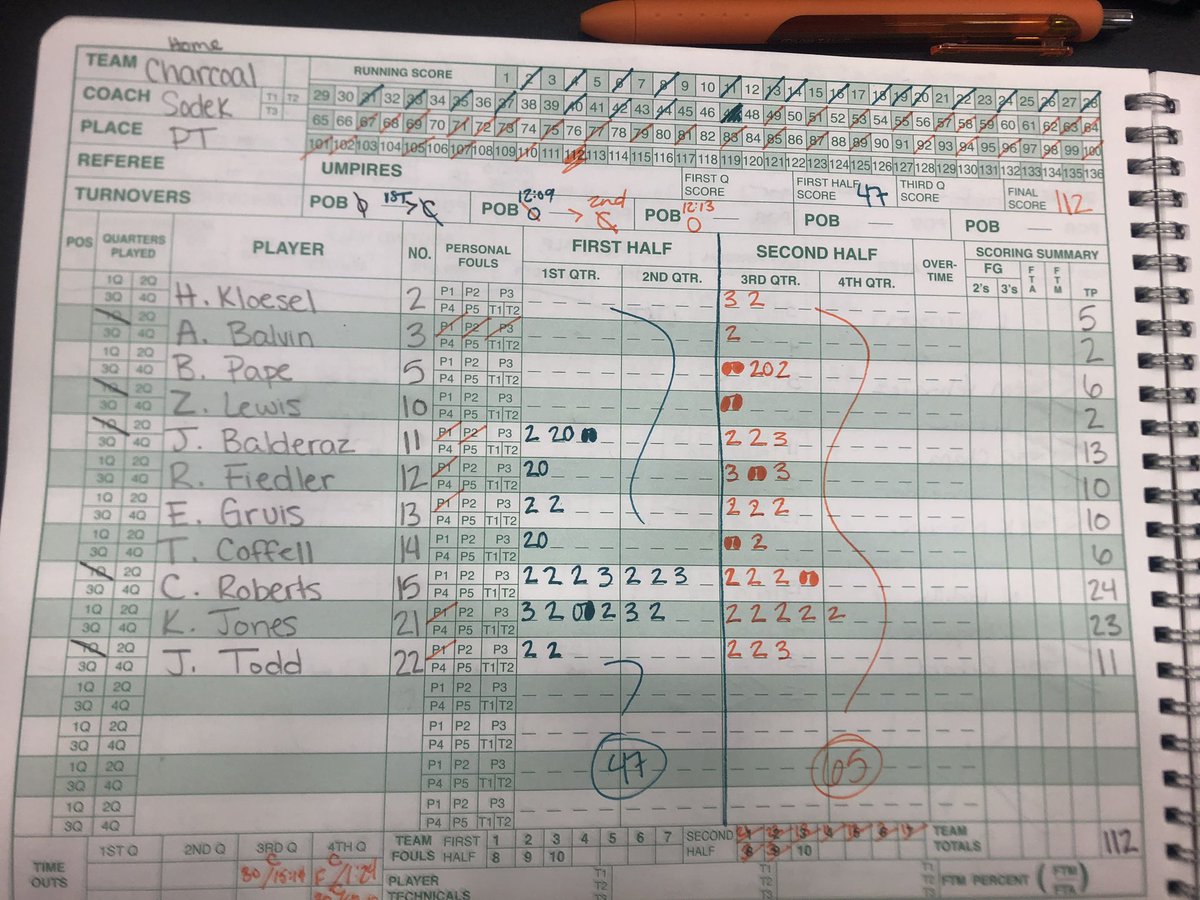 Home
TEAM Charcoal RUNNING SCORE 1 2 3 4 5 6 7 8 9 10 11 12 13 14 15 16 17 18 19 20 21 22 23 24 25 26 27 28
COACH Sodek T1 T2 T3 29 30 31 32 33 34 35 36 37 38 39 40 41 42 43 44 45 46 48 49 50 51 52 53 54 55 56 57 58 59 60 61 62 63 64
65 66 67 68 69 70 71 72 73 74 75 76 77 78 79 80 81 82 83 84 85 86 87 88 89 90 91 92 93 94 95 96 97 98 99 100
PLACE PT 101 102 103 104 105 106 107 108 109 110 111 112 113 114 115 116 117 118 119 120 121 122 123 124 125 126 127 128 129 130 131 132 133 134 135 136
REFEREE UMPIRES FIRST Q SCORE FIRST HALF SCORE 47 THIRD Q SCORE FINAL SCORE 112
TURNOVERS POB 1ST > C POB 12:09 O → 2nd C POB 12:13 O POB POB
POS QUARTERS PLAYED PLAYER NO. PERSONAL FOULS FIRST HALF SECOND HALF OVER-TIME SCORING SUMMARY
1ST QTR. 2ND QTR. 3RD QTR. 4TH QTR. FG 2's 3's FTA FTM TP
1Q 2Q H. Kloesel 2 P1 P2 P3 3 2 5
3Q 4Q P4 P5 T1 T2
1Q 2Q A. Balvin 3 P1 P2 P3 2 2
3Q 4Q P4 P5 T1 T2
1Q 2Q B. Pape 5 P1 P2 P3 202 6
3Q 4Q P4 P5 T1 T2
1Q 2Q Z. Lewis 10 P1 P2 P3 2
3Q 4Q P4 P5 T1 T2
1Q 2Q J. Balderaz 11 P1 P2 P3 2 20 2 2 3 13
3Q 4Q P4 P5 T1 T2
1Q 2Q R. Fiedler 12 P1 P2 P3 20 3 3 10
3Q 4Q P4 P5 T1 T2
1Q 2Q E. Gruis 13 P1 P2 P3 2 2 2 2 2 10
3Q 4Q P4 P5 T1 T2
1Q 2Q T. Coffell 14 P1 P2 P3 20 2 6
3Q 4Q P4 P5 T1 T2
1Q 2Q C. Roberts 15 P1 P2 P3 2 2 2 3 2 2 3 2 2 2 24
3Q 4Q P4 P5 T1 T2
1Q 2Q K. Jones 21 P1 P2 P3 3 2 0 2 3 2 2 2 2 2 2 23
3Q 4Q P4 P5 T1 T2
1Q 2Q J. Todd 22 P1 P2 P3 2 2 2 2 3 11
3Q 4Q P4 P5 T1 T2
1Q 2Q P1 P2 P3
3Q 4Q P4 P5 T1 T2
1Q 2Q P1 P2 P3
3Q 4Q P4 P5 T1 T2
1Q 2Q P1 P2 P3 47 65
3Q 4Q P4 P5 T1 T2
1Q 2Q P1 P2 P3
3Q 4Q P4 P5 T1 T2
TIME OUTS 1ST Q 2ND Q 3RD Q 4TH Q TEAM FOULS FIRST HALF 1 2 3 4 5 6 7 SECOND HALF 1 2 3 4 5 6 7 TEAM TOTALS 112
8 9 10 8 9 10
C C 1:24
PLAYER TECHNICALS T1 T2 T3 T1 T2 T3 T1 T2 T3 FTM PERCENT ( FTM FTA )